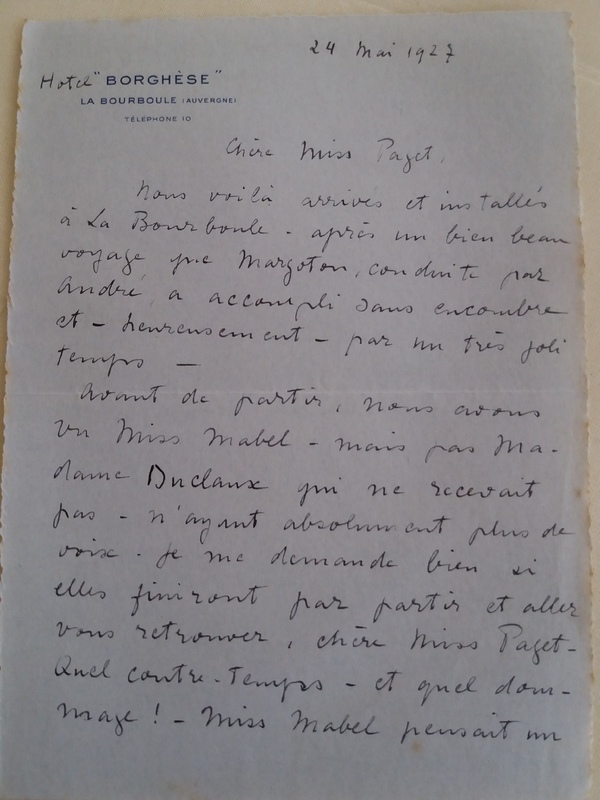 24 Mai 1927
Hotel "BORGHÈSE"
LA BOURBOULE (AUVERGNE)
TÉLÉPHONE 10
Chère Miss Paget,
Nous voilà arrivés et installés
à La Bourboule - après un bien beau
voyage que Margoton, conduite par
André, a accompli sans encombre
et - heureusement - par un très joli
temps -
Avant de partir, nous avons
vu Miss Mabel - mais pas Ma-
dame Duclaux qui ne recevait
pas - n'ayant absolument plus de
voix. Je me demande bien si
elles finiront par partir et aller
vous retrouver, chère Miss Paget -
Quel contre-temps - et quel dom-
mage ! - Miss Mabel pensait un